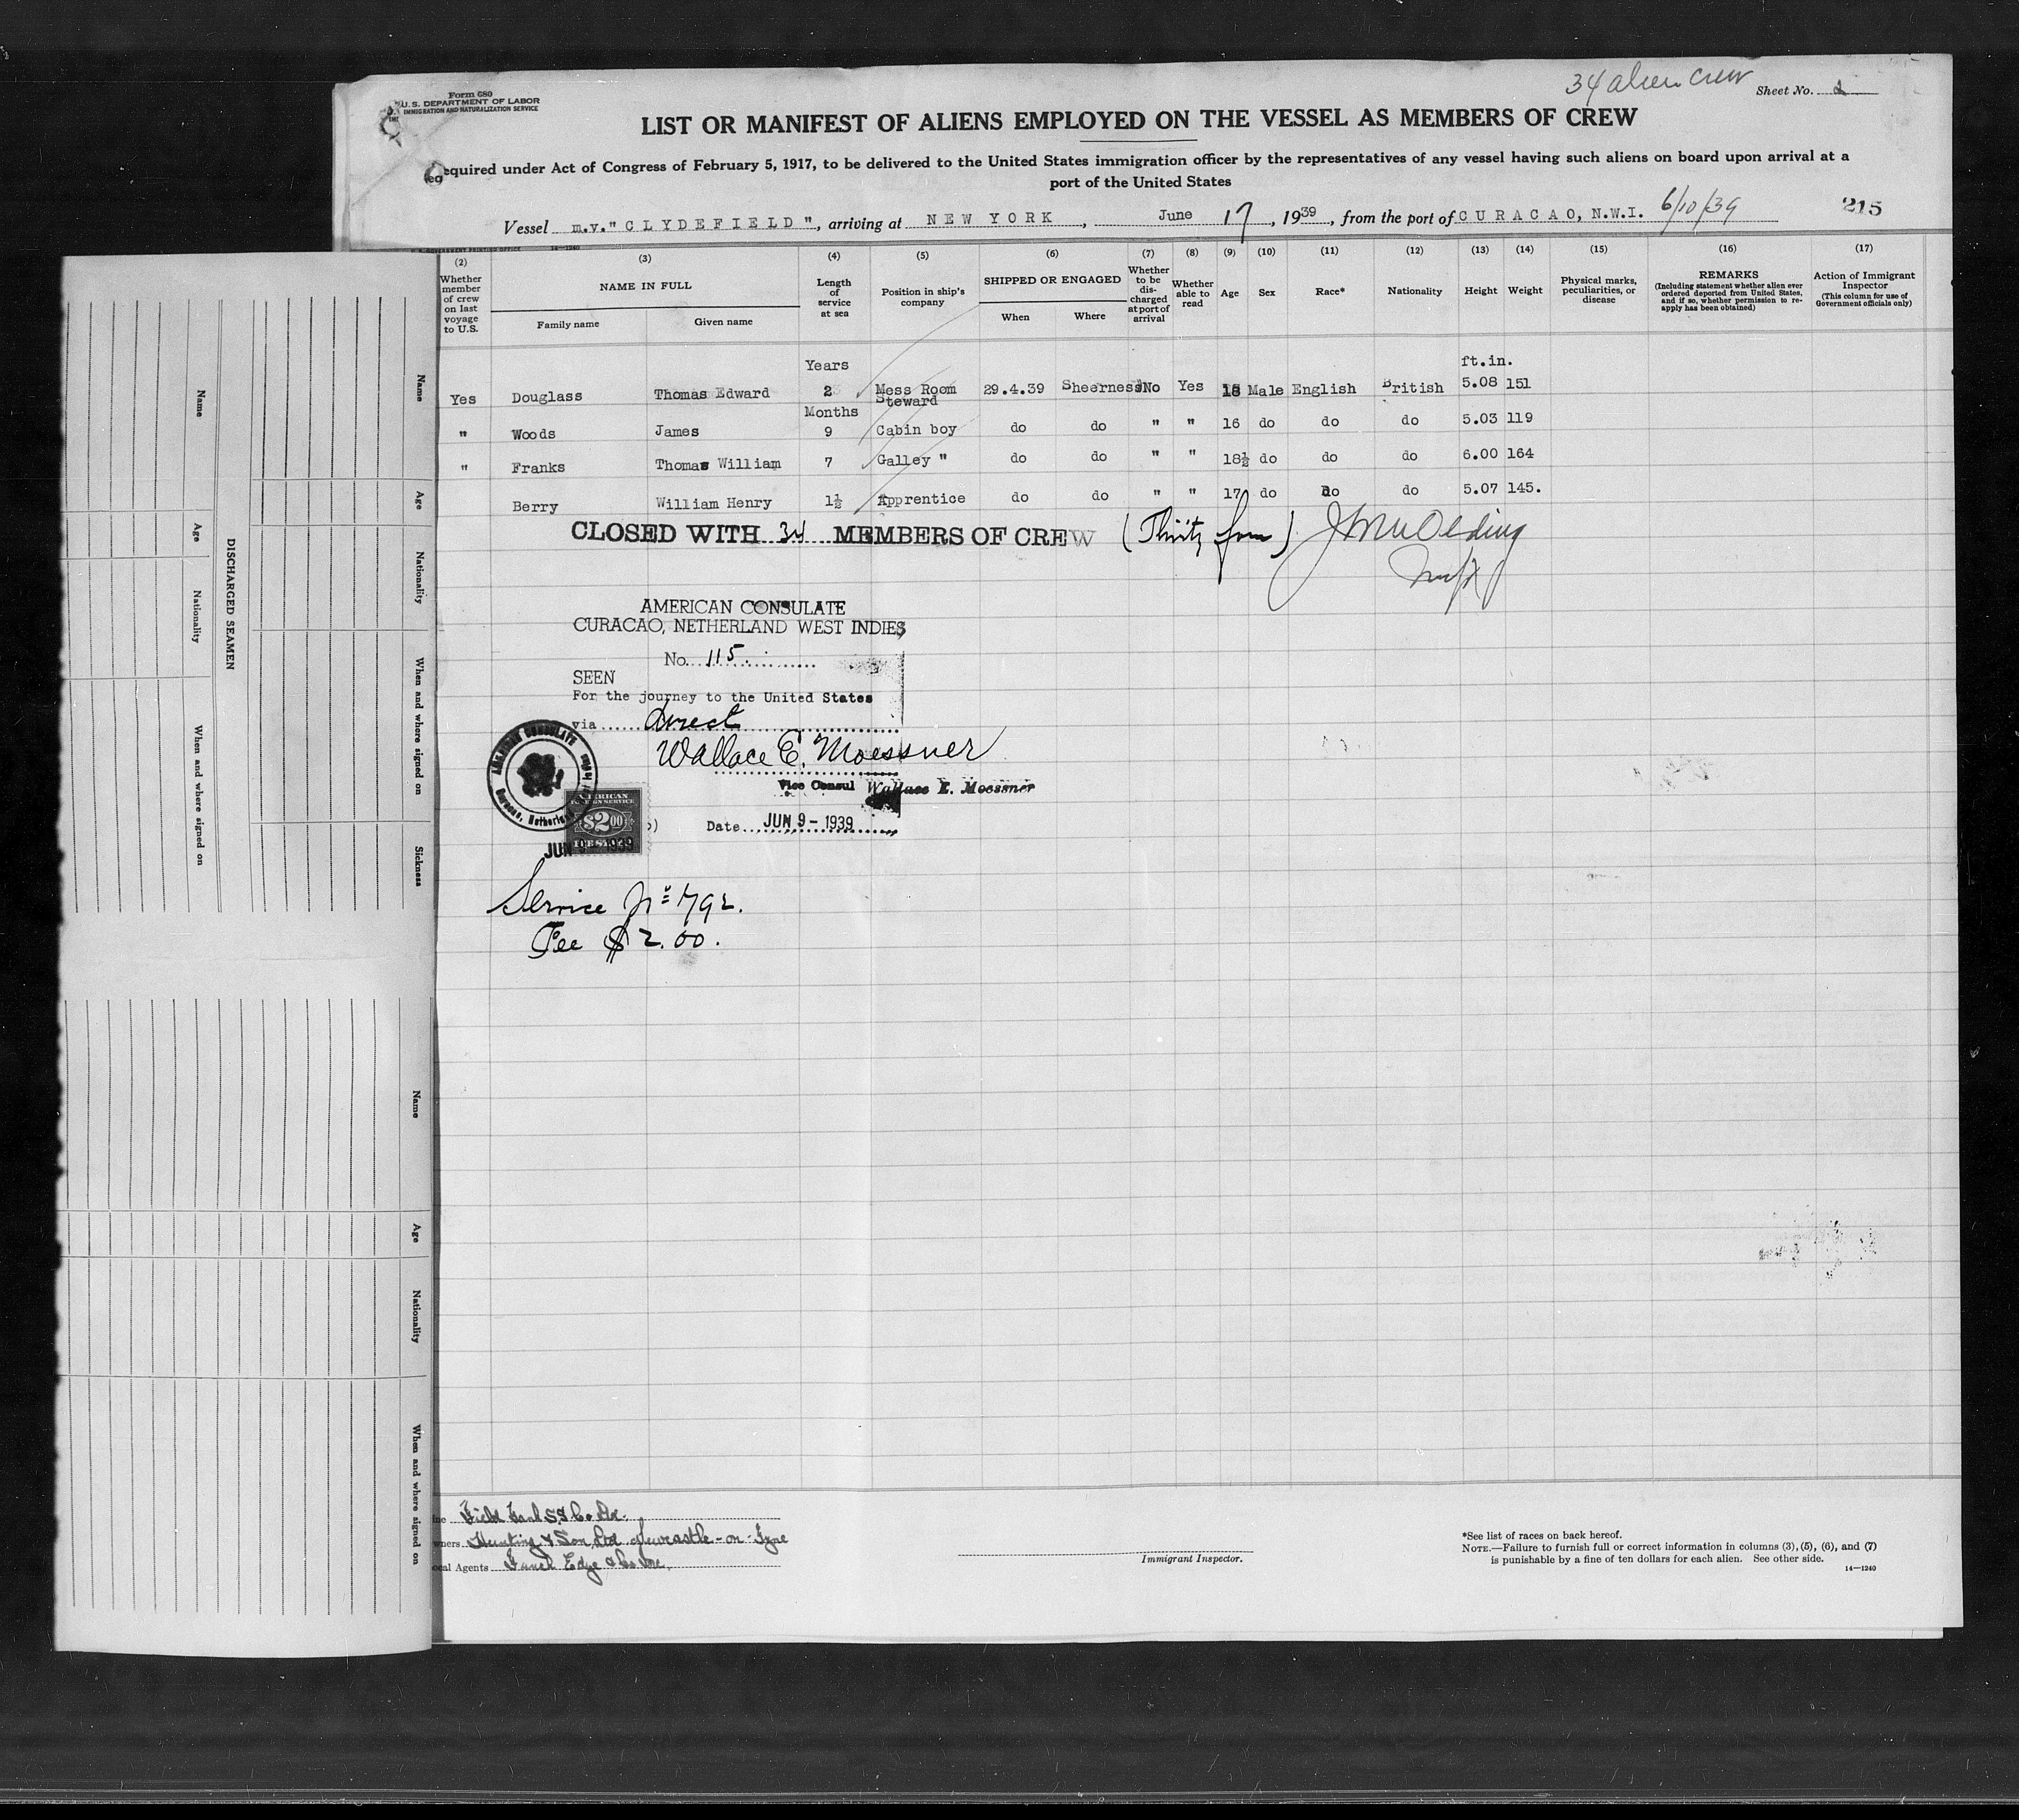 34 alien crew
Form 680
U.S. DEPARTMENT OF LABOR
IMMIGRATION AND NATURALIZATION SERVICE
Sheet No. 2
LIST OR MANIFEST OF ALIENS EMPLOYED ON THE VESSEL AS MEMBERS OF CREW
equired under Act of Congress of February 5, 1917, to be delivered to the United States immigration officer by the representatives of any vessel having such aliens on board upon arrival at a
port of the United States
Vessel m.v."CLYDEFIELD", arriving at NEW YORK, June 17, 1939, from the port of CURACAO, N.W.I. 6/10/39
215
14—1240
(2) (3) (4) (5) (6) (7) (8) (9) (10) (11) (12) (13) (14) (15) (16) (17)
Whether member of crew on last voyage to U.S.
NAME IN FULL
Family name
Given name
Length of service at sea
Position in ship's company
SHIPPED OR ENGAGED
When
Where
Whether to be discharged at port of arrival
Whether able to read
Age
Sex
Race*
Nationality
Height
Weight
Physical marks, peculiarities, or disease
REMARKS
(Including statement whether alien ever ordered deported from United States, and if so, whether permission to re-apply has been obtained)
Action of Immigrant Inspector
(This column for use of Government officials only)
Years
ft.in.
Yes Douglass Thomas Edward 2 Mess Room Steward 29.4.39 Sheerness No Yes 18 Male English British 5.08 151
Months
" Woods James 9 Cabin boy do do " " 16 do do do 5.03 119
" Franks Thomas William 7 Galley " do do " " 18½ do do do 6.00 164
Berry William Henry 1½ Apprentice do do " " 17 do do do 5.07 145.
CLOSED WITH 34 MEMBERS OF CREW (Thirty four)
AMERICAN CONSULATE
CURACAO, NETHERLAND WEST INDIES
No. 115
SEEN
For the journey to the United States
via direct
Wallace E. Moessner
Vice Consul Wallace E. Moessner
AMERICAN CONSULATE
AMERICAN
FOREIGN SERVICE
$2.00
Date JUN 9 - 1939
JUN 9 1939
Service No 792.
Fee $2.00.
Name
Age
Nationality
When and where signed on
DISCHARGED SEAMEN
Name
Age
Nationality
When and where signed on
Sickness
Name
Age
Nationality
When and where signed on
Field Tank S.S. Co Ltd.
wners Hunting & Son, Ltd Newcastle-on-Tyne
ocal Agents Funch Edye & Co Inc.
Immigrant Inspector.
*See list of races on back hereof.
NOTE.—Failure to furnish full or correct information in columns (3), (5), (6), and (7)
is punishable by a fine of ten dollars for each alien. See other side.
14—1240